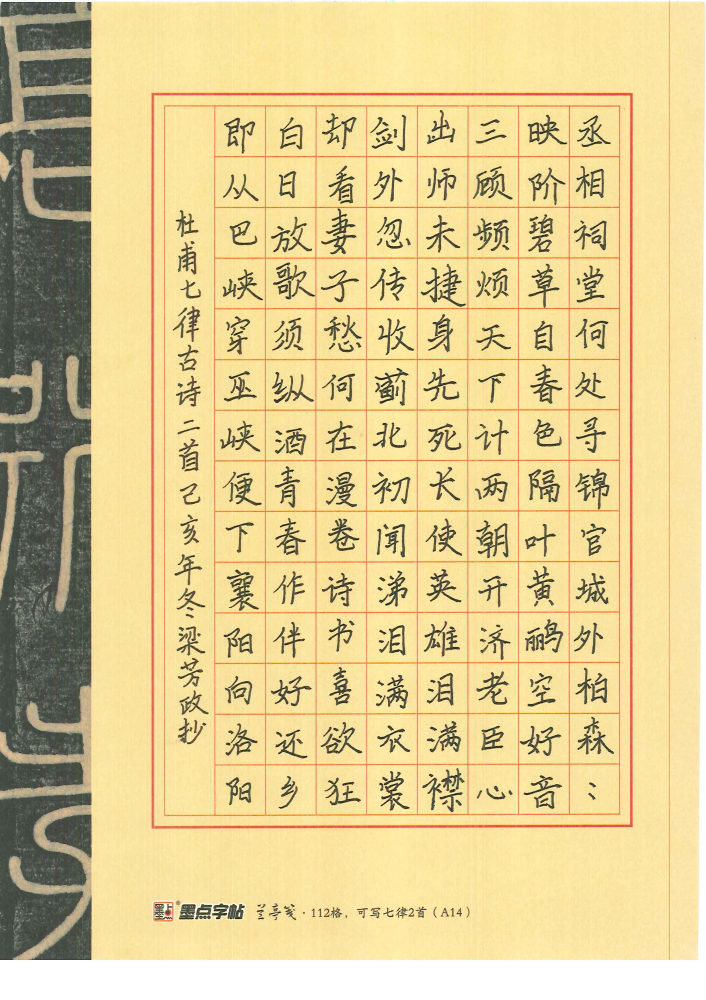 丞相祠堂何处寻锦官城外柏森〻
映阶碧草自春色隔叶黄鹂空好音
三顾频烦天下计两朝开济老臣心
出师未捷身先死长使英雄泪满襟
剑外忽传收蓟北初闻涕泪满衣裳
却看妻子愁何在漫卷诗书喜欲狂
白日放歌须纵酒青春作伴好还乡
即从巴峡穿巫峡便下襄阳向洛阳
杜甫七律古诗二首己亥年冬梁芳政抄
墨点 墨点字帖 兰亭笺·112格，可写七律2首（A14）